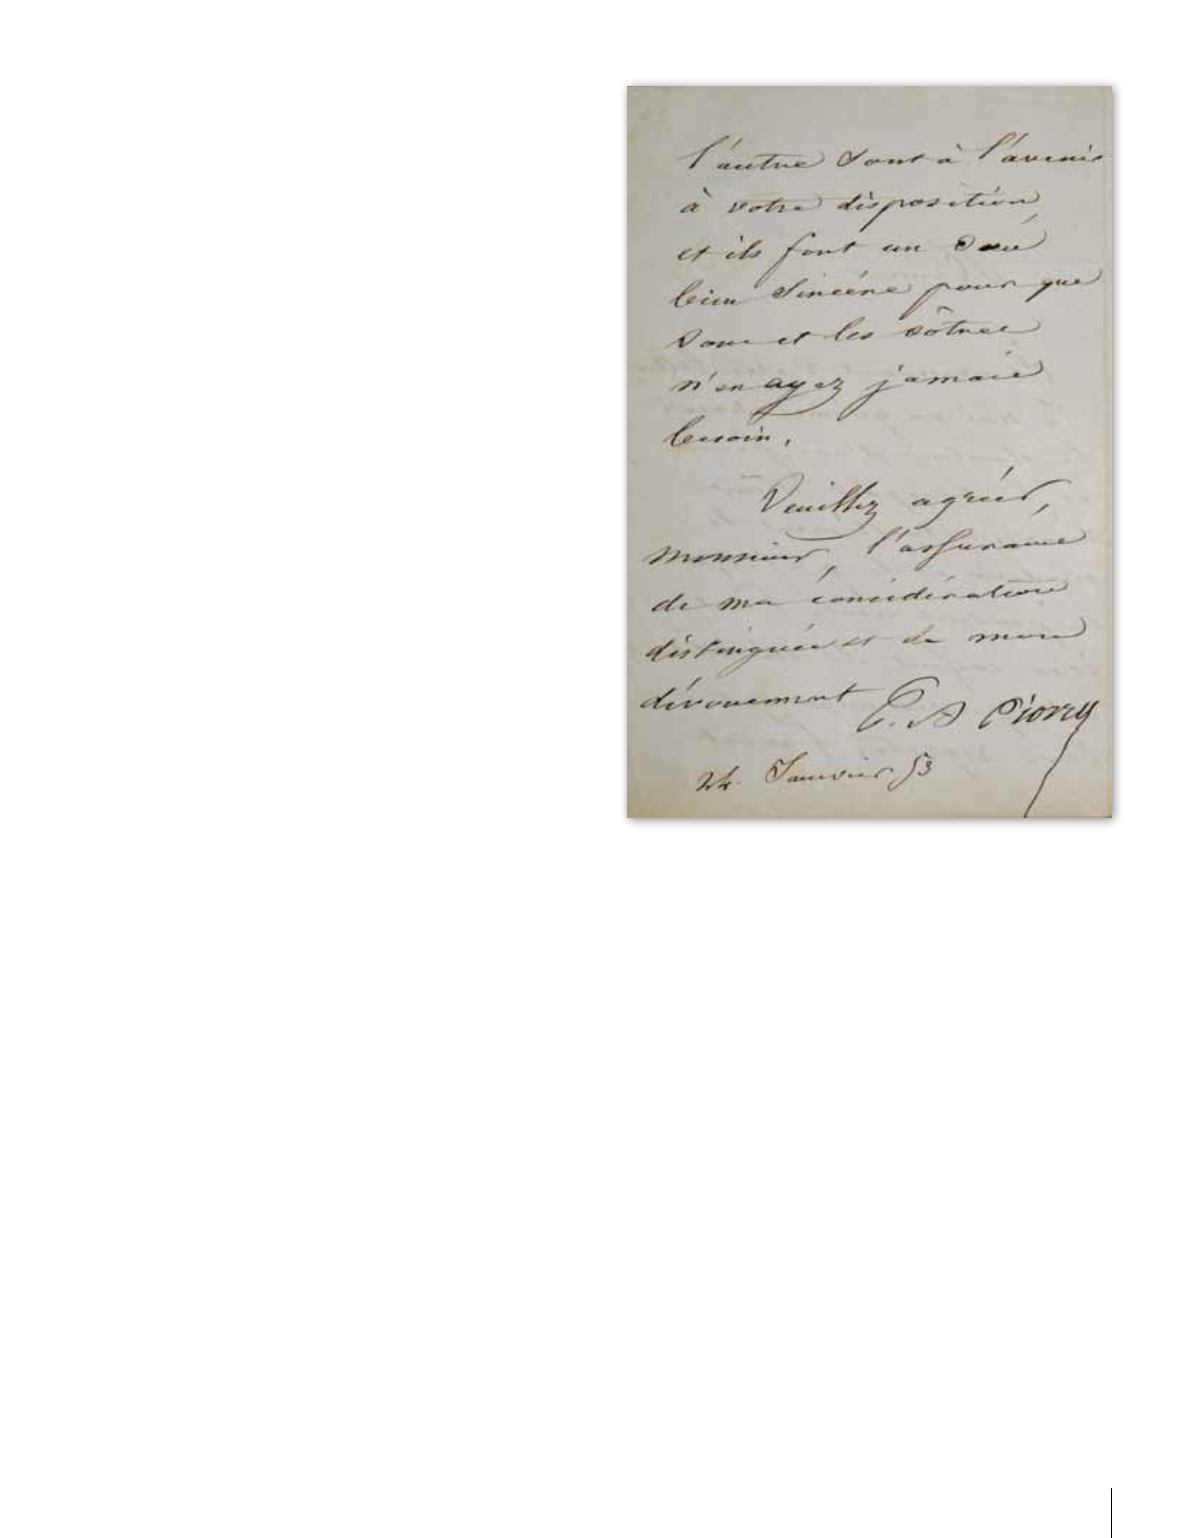 l'autre sont à l'avenir
à votre disposition
et ils font un vœu
bien sincère pour que
vous et les vôtres
n'en ayez jamais
besoin.
Veuillez agréer,
monsieur, l'assurance
de ma considération
distinguée et de mon
dévouement P. A Piorry
24. Janvier 53